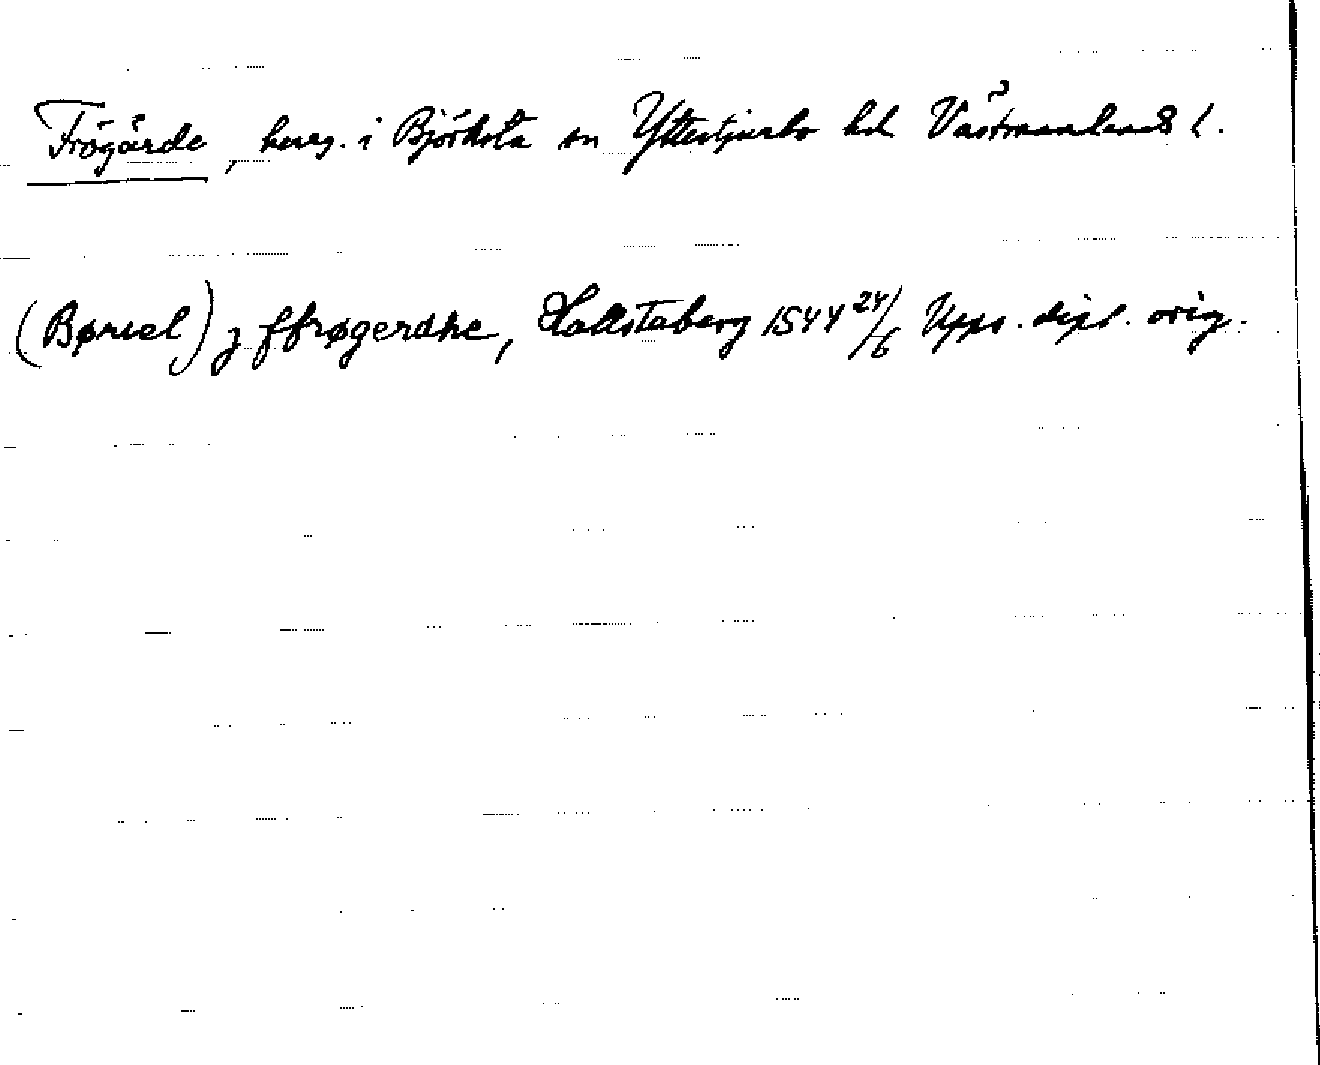 Frögärde, herrg. i Björksta sn Yttertjurbo hd Västmanlands l.
(Børiel) j ffrøgerdhe, Hallstaberg 1544 24/6 Upps. dipl. orig.